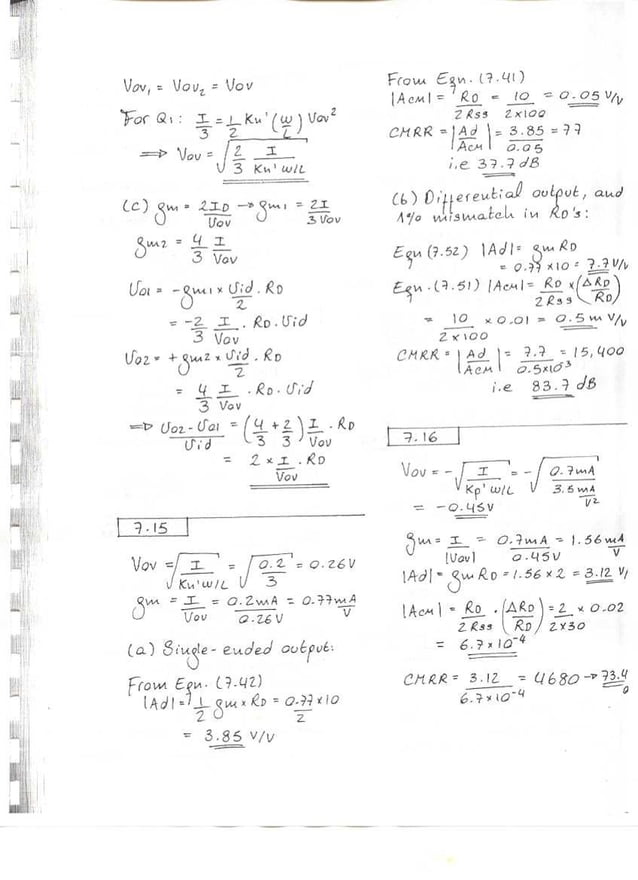 Vov₁ = Vov₂ = Vov
For Q₁: I/3 = 1/2 Kn' (W/L) Vov²
⟹ Vov = √(2/3 I/(Kn' W/L))
(c) gm = 2ID/Vov → gm₁ = 2I/3Vov
gm₂ = 4/3 I/Vov
Vo1 = -gm₁ × Vid/2 . RD
= -2/3 I/Vov . RD . Vid
Vo2 = + gm₂ × Vid/2 . RD
= 4/3 I/Vov . RD . Vid
⟹ (Vo2 - Vo1)/Vid = (4/3 + 2/3) I/Vov . RD
= 2 × I/Vov . RD
7.15
Vov = √(I/(Kn' W/L)) = √(0.2/3) = 0.26V
gm = I/Vov = 0.2mA/0.26V = 0.77 mA/V
(a) Single-ended output:
From Eqn. (7.42)
|Ad| = 1/2 gm × RD = 0.77 × 10/2
= 3.85 V/V
From Eqn. (7.41)
|ACM| = RD/2Rss = 10/2×100 = 0.05 V/V
CMRR = |Ad/ACM| = 3.85/0.05 = 77
i.e 37.7 dB
(b) Differential output, and
1% mismatch in RD's:
Eqn (7.52) |Ad| = gm RD
= 0.77 × 10 = 7.7 V/V
Eqn. (7.51) |ACM| = RD/2Rss × (ΔRD/RD)
= 10/2×100 × 0.01 = 0.5 m V/V
CMRR = |Ad/ACM| = 7.7/0.5×10³ = 15,400
i.e 83.7 dB
7.16
Vov = -√(I/(Kp' W/L)) = -√(0.7mA/3.5 mA/V²)
= -0.45V
gm = I/|Vov| = 0.7mA/0.45V = 1.56 mA/V
|Ad| = gm RD = 1.56 × 2 = 3.12 V/
|ACM| = RD/2Rss . (ΔRD/RD) = 2/2×30 × 0.02
= 6.7×10⁻⁴
CMRR = 3.12/6.7×10⁻⁴ = 4680 → 73.4